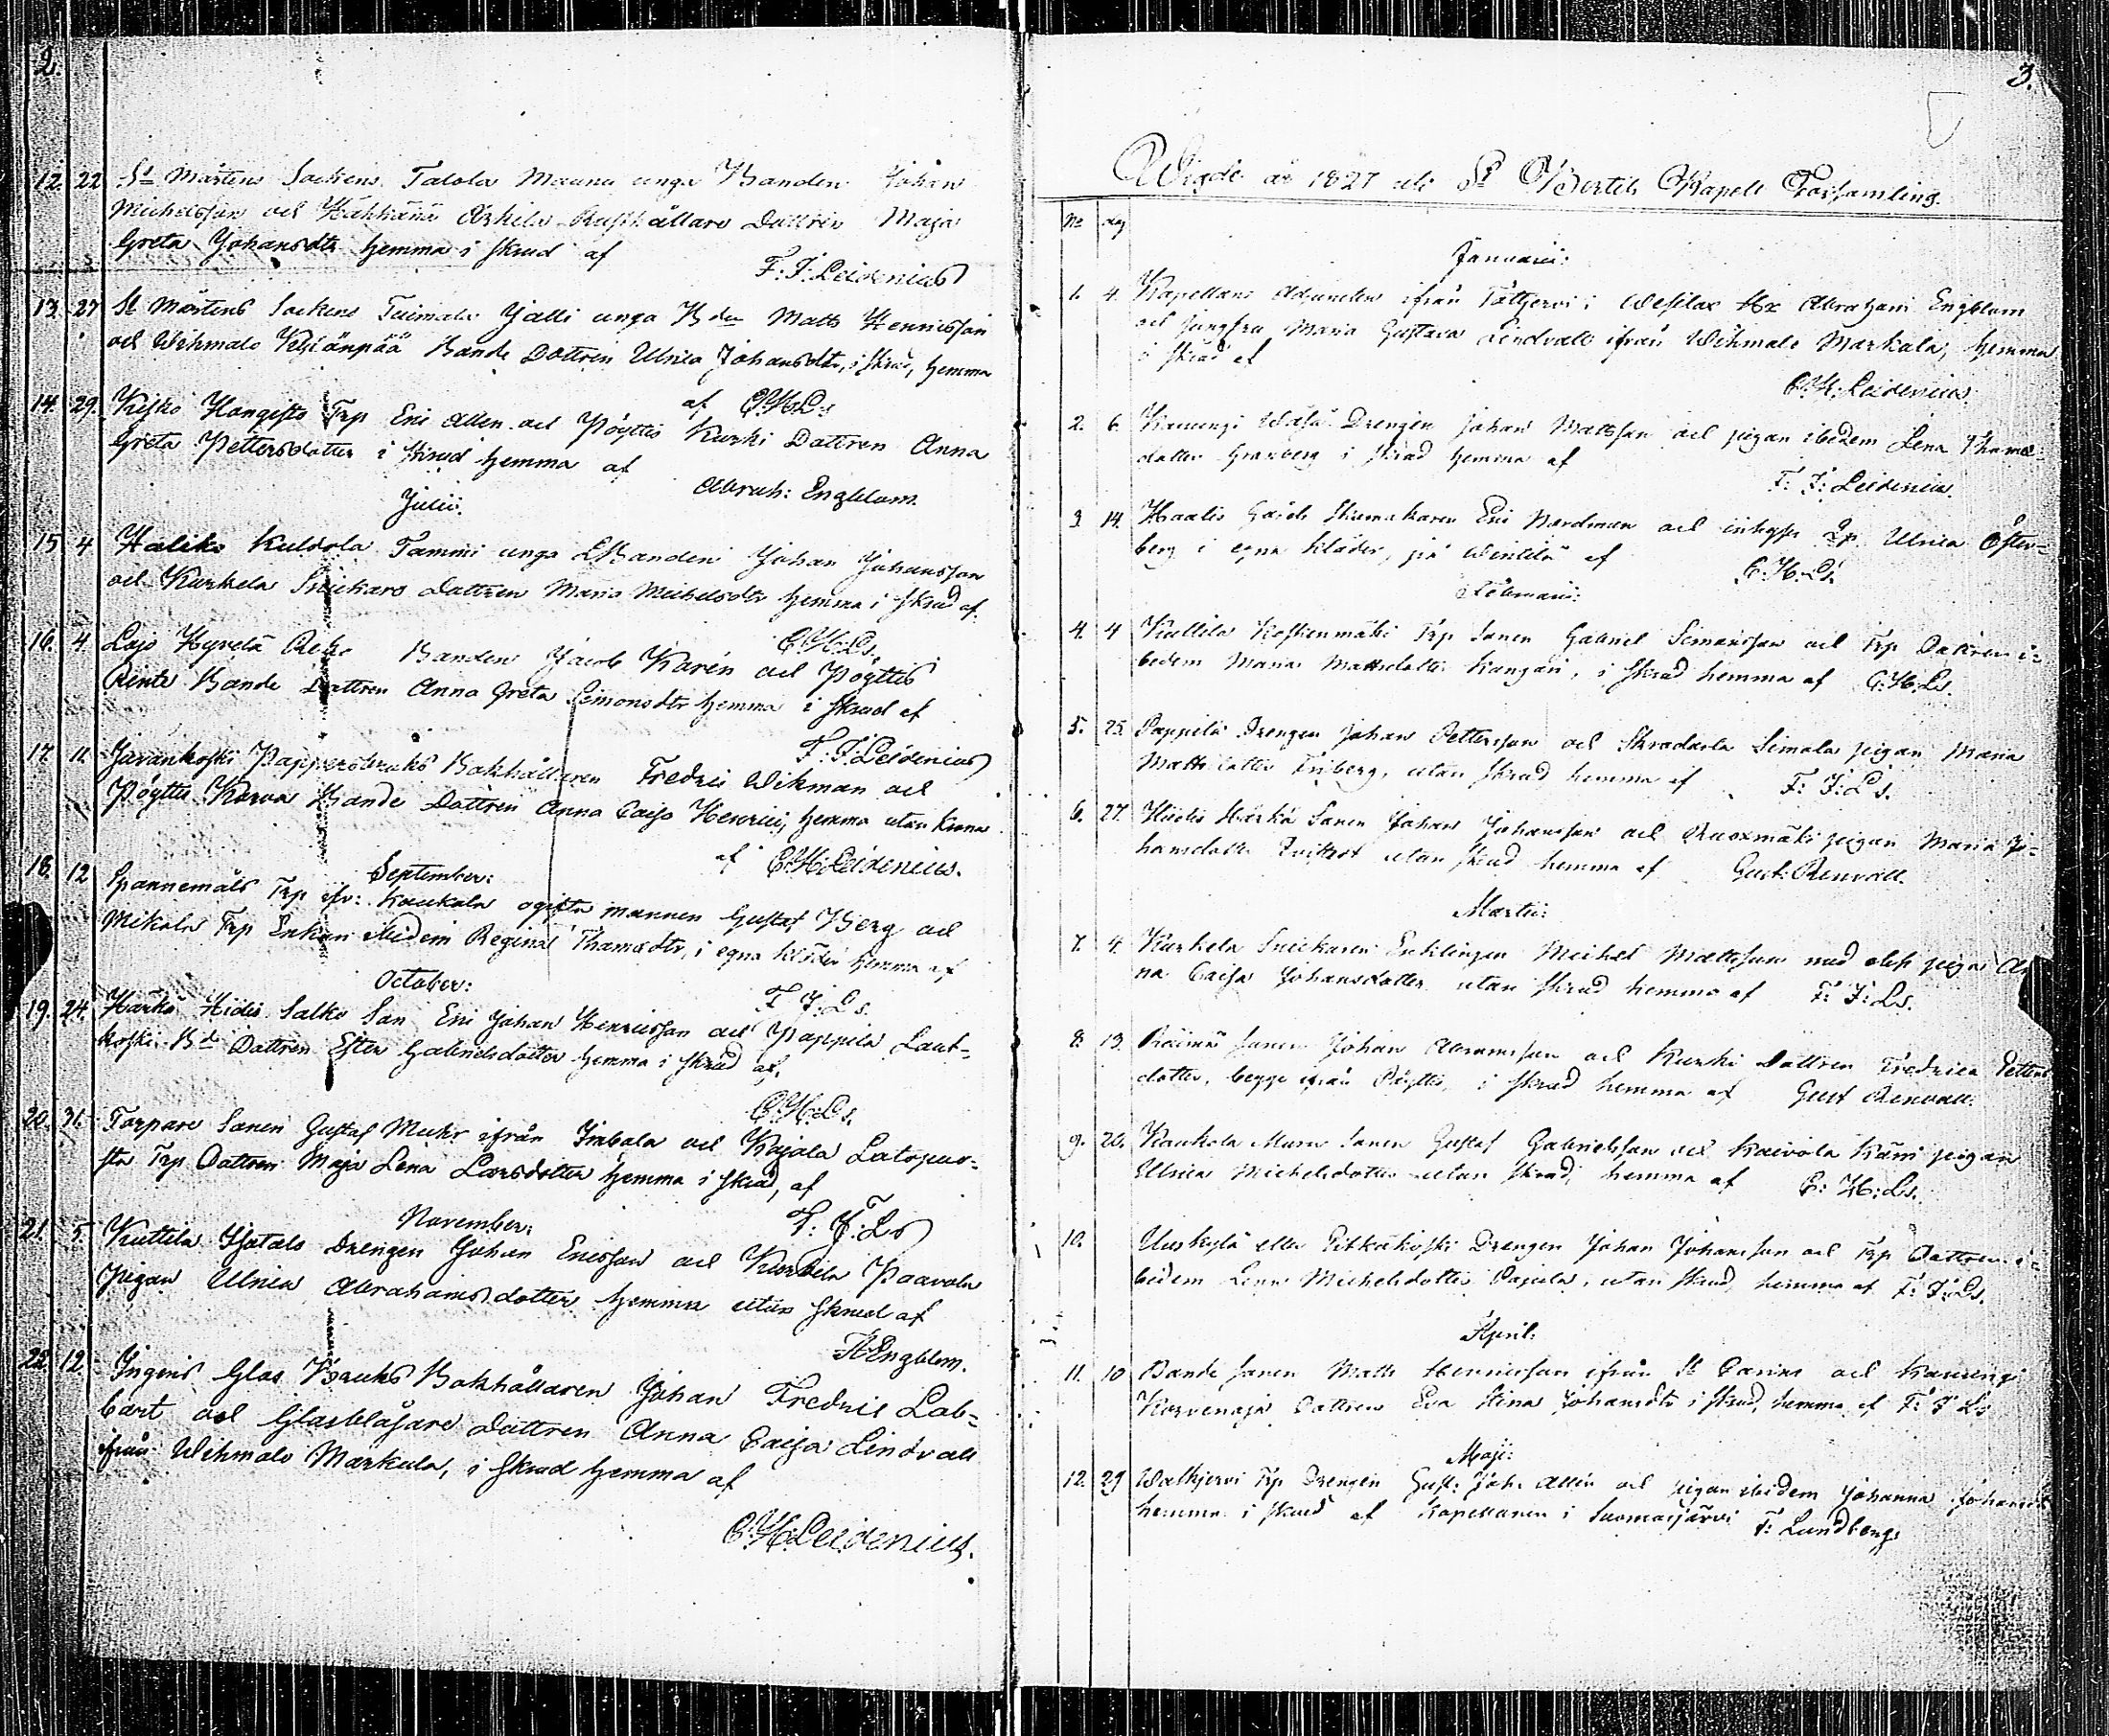 2.
12. 22 St Mårtens Sockens Talola Maunu unga Bonden Johan
Michelsson och Häkhänä Arkila Rusthållare Dottren Maja
Greta Johansdtr hemma i skrud af
F: J: Leidenius
13. 27 St Mårtens Sockens Tuimala Jalli unga Bden Matts Henricsson
och Wihmalo Yliänpää Bonde Dottren Ulrica Johansdtr, i skrud, hemma
af C:H:Ls
14. 29. Kisko Hongisto Trp Eric Allen och Pöyttis Kurki Dottren Anna
Greta Pettersdotter i skrud hemma af
Abrah: Engblom.
Julii.
15 4 Haliko Kuldola Tammi unga Bonden Johan Johansson
och Kurkela Snickare Dottren Maria Michelsdtr hemma i skrud af.
C:H:Ls.
16. 4. Lojo Hyrelä Bonden Jacob Karén och Pöyttis
Rinte Bonde Dottren Anna Greta Simonsdtr hemma i skrud af
F: J: Leidenius
17. 11. Jurvankoski Pappersbruks Bokhållaren Fredric Wikman och
Pöyttis Korva Bonde Dottren Anna Caisa Henrici, hemma utan krona
af C:H:Leidenius.
September:
18. 12 Spannemåls Trp ifr: Kaukola ogifta mannen Gustaf Berg och
Mikola Trp Enkan ibidem Regina Thomasdtr, i egna kläder hemma af
F J: Ls.
October:
19. 24. Härkä Hidis Salko Son Eric Johan Henricsson och Pappila Laut=
koski Bde Dottren Ester Gabrielsdotter hemma i skrud af.
C:H:Ls.
20. 31. Torpare Sonen Gustaf Muhr ifrån Inkala och Kajala Latopur=
sto Trp Dottren Maja Lena Larsdotter hemma i skrud, af
F: J: Ls
November:
21. 5 Kuttila Ylätalo Drengen Johan Ericsson och Kurkela Paavola
Pigan Ulrica Abrahamsdotter hemma utan skrud af
A Engblom.
22. 12. Ingeris Glas Bruks Bokhållaren Johan Fredric Lab=
bart och Glasblåsare Dottren Anna Caisa Lindvall
ifrån Wihmalo Markula, i skrud hemma af
C:H:Leidenius.
3.
Wigde år 1827 uti St Bertils Kapell Församling.
No dag
Januarii:
1. 4. Kapellans Adjuncten ifrån Töttjervi i Wesilax Hr Abraham Engblom
och jungfru Maria Gustava Lindvall ifrån Wihmalo Markula, hemma
i skrud af
C:H: Leidenius
2. 6. Kauungi Drengen Johan Mattsson och pigan ibidem Lena Thomæ=
dotter Granberg i skrud hemma af
F: J: Leidenius.
3 14. Haalis Gårds Skomakaren Eric Nordman och inhyses Ulrica Öster=
berg i egna kläder, på Wintilä af
C:H:Ls.
Februarii:
4. 4 Kuttila Koskenmäki Trp Sonen Gabriel Simonsson och Trp Dottren i=
bedem Maria Mattsdotter Kangari, i skrud hemma af C:H:Ls.
5. 25. Pappila Drengen Johan Pettersson och Skradarla Simala pigan Maria
Mattsdotter Friberg, utan skrud hemma af F: J: Ls.
6. 27. Hidis Härkä Sonen Johan Johansson och Ruoxmäki pigan Maria Jo=
hansdotter utan skrud hemma af Gust: Renvall.
Martii:
7. 4. Kurkela Snickaren Enklingen Michel Mattsson med pigan An
na Caisa Johansdotter utan skrud hemma af F: J: Ls.
8. 13. Räimä Sonen Johan Abramsson och Kurki Dottren Fredrica Petters
dotter, begge ifrån Pöyttis, i skrud hemma af Gust Renvall.
9. 20. Kaukola Muru Sonen Gustaf Gabrielsson och Kaivola Käri pigan
Ulrica Michelsdotter utan skrud, hemma af C: H: Ls.
10. Uuskylä eller Pitkäkoski Drengen Johan Johansson och Trp Dottren i=
bedem Lena Michelsdotter Pajula, utan skrud, hemma af F: J: Ls.
April:
11. 10 Bonde Sonen Matts Henricsson ifrån St Carins och Kauungi
Korvenoja Dottren Eva Stina Johansdtr i skrud, hemma af F: J Ls
Maji:
12. 29 Walkjervi Trp Drengen Gust: Joh: Allén och pigan ibidem Johanna Johansd
hemma i skrud af Kapellanen i Suomusjärvi F: Lundberg.